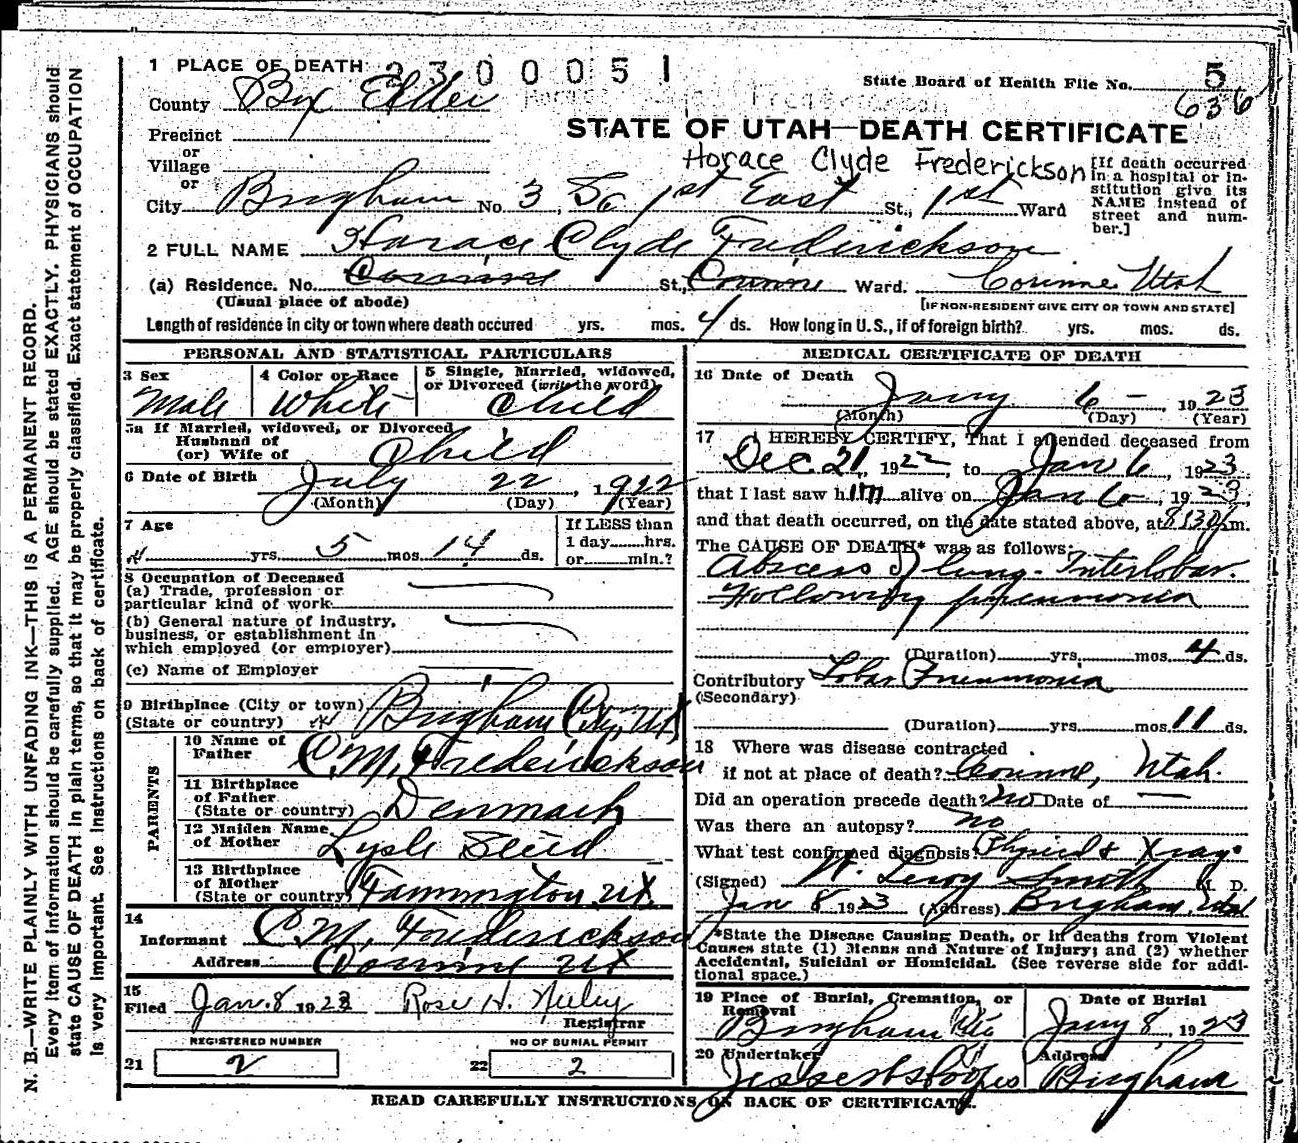 1 PLACE OF DEATH 2300051
State Board of Health File No. 5
636
County Box Elder
STATE OF UTAH—DEATH CERTIFICATE
Precinct
or
Village
or
Horace Clyde Frederickson
[If death occurred in a hospital or institution give its NAME instead of street and number.]
City Brigham No. 3 So 1st East St., 1st Ward
2 FULL NAME Horace Clyde Frederickson
(a) Residence. No. Corinne St., Corinne Ward. Corinne Utah
(Usual place of abode) [IF NON-RESIDENT GIVE CITY OR TOWN AND STATE]
Length of residence in city or town where death occured yrs. mos. 4 ds. How long in U.S., if of foreign birth? yrs. mos. ds.
PERSONAL AND STATISTICAL PARTICULARS
3 Sex Male
4 Color or Race White
5 Single, Married, widowed, or Divorced (write the word) Child
5a If Married, widowed, or Divorced
Husband of
(or) Wife of Child
6 Date of Birth July 22, 1922
(Month) (Day) (Year)
7 Age
yrs. 5 mos. 14 ds.
If LESS than
1 day......hrs.
or......min.?
8 Occupation of Deceased
(a) Trade, profession or
particular kind of work
(b) General nature of industry,
business, or establishment in
which employed (or employer)
(c) Name of Employer
9 Birthplace (City or town)
(State or country) Brigham City, Ut
PARENTS
10 Name of
Father C. M. Frederickson
11 Birthplace
of Father
(State or country) Denmark
12 Maiden Name
of Mother Lysle
13 Birthplace
of Mother
(State or country) Farmington, Ut.
14
Informant C. M. Frederickson
Address Corinne Ut
15
Filed Jan. 8 1923 Rose H. Neeley
Registrar
REGISTERED NUMBER
21 2
NO OF BURIAL PERMIT
22 2
MEDICAL CERTIFICATE OF DEATH
16 Date of Death
Jany 6 – 1923
(Month) (Day) (Year)
17 I HEREBY CERTIFY, That I attended deceased from
Dec 21, 1922 to Jan 6, 1923
that I last saw him alive on Jan 6, 1923
and that death occurred, on the date stated above, at 8:30 p.m.
The CAUSE OF DEATH* was as follows:
Abscess of lung - Interlobar.
Following pneumonia
(Duration) yrs. mos. 4 ds.
Contributory Lobar Pneumonia
(Secondary)
(Duration) yrs. mos. 11 ds.
18 Where was disease contracted
if not at place of death? Corinne, Utah.
Did an operation precede death? no Date of —
Was there an autopsy? no
What test confirmed diagnosis? Physical & Xray
(Signed) W. Leroy Smith M. D.
Jan 8 1923 (Address) Brigham, Utah
*State the Disease Causing Death, or if deaths from Violent
Causes state (1) Means and Nature of Injury; and (2) whether
Accidental, Suicidal or Homicidal. (See reverse side for addi-
tional space.)
19 Place of Burial, Cremation, or
Removal
Brigham
Date of Burial
Jany 8, 1923
20 Undertaker
Address
Brigham
READ CAREFULLY INSTRUCTIONS ON BACK OF CERTIFICATE.
N. B.—WRITE PLAINLY WITH UNFADING INK—THIS IS A PERMANENT RECORD.
Every item of information should be carefully supplied. AGE should be stated EXACTLY. PHYSICIANS should
state CAUSE OF DEATH in plain terms, so that it may be properly classified. Exact statement of OCCUPATION
is very important. See instructions on back of certificate.